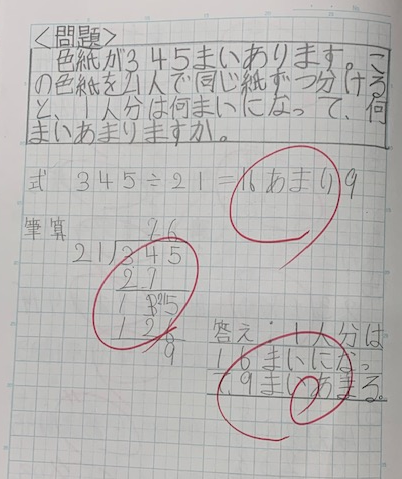 <問題>
色紙が345まいあります。こ
の色紙を21人で同じ紙ずつ分ける
と、1人分は何まいになって、何
まいあまりますか。
式 345÷21=16あまり9
筆算
16
21)345
21
135
126
9
答え:1人分は
16まいになっ
て9まいあまる。